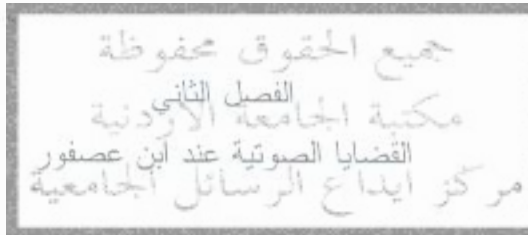 جميع الحقوق محفوظة
الفصل الثاني
مكتبة الجامعة الاردنية
القضايا الصوتية عند ابن عصفور
مركز ايداع الرسائل الجامعية